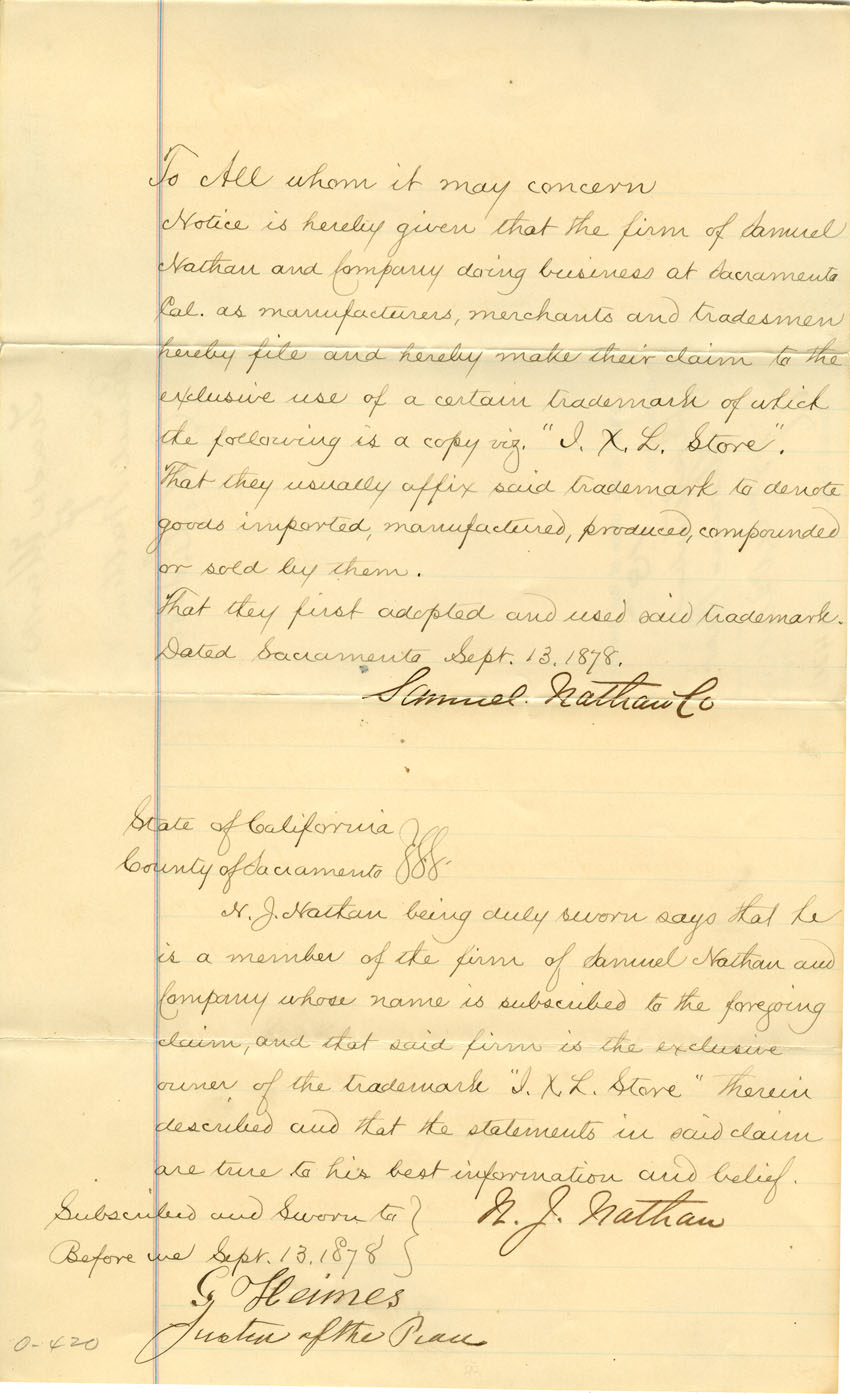 To All whom it may concern
Notice is hereby given that the firm of Samuel
Nathan and Company doing business at Sacramento
Cal. as manufacturers, merchants and tradesmen
hereby file and hereby make their claim to the
exclusive use of a certain trademark of which
the following is a copy viz. "I. X. L. Store".
That they usually affix said trademark to denote
goods imported, manufactured, produced, compounded
or sold by them.
That they first adopted and used said trademark.
Dated Sacramento Sept. 13. 1878.
Samuel. Nathan Co
State of California
County of Sacramento } SS.
N. J. Nathan being duly sworn says that he
is a member of the firm of Samuel Nathan and
Company whose name is subscribed to the foregoing
claim, and that said firm is the exclusive
owner of the trademark "I. X. L. Store" therein
described and that the statements in said claim
are true to his best information and belief.
Subscribed and Sworn to }
N. J. Nathan
Before me Sept. 13. 1878
G Heimes
Justice of the Peace
O-420